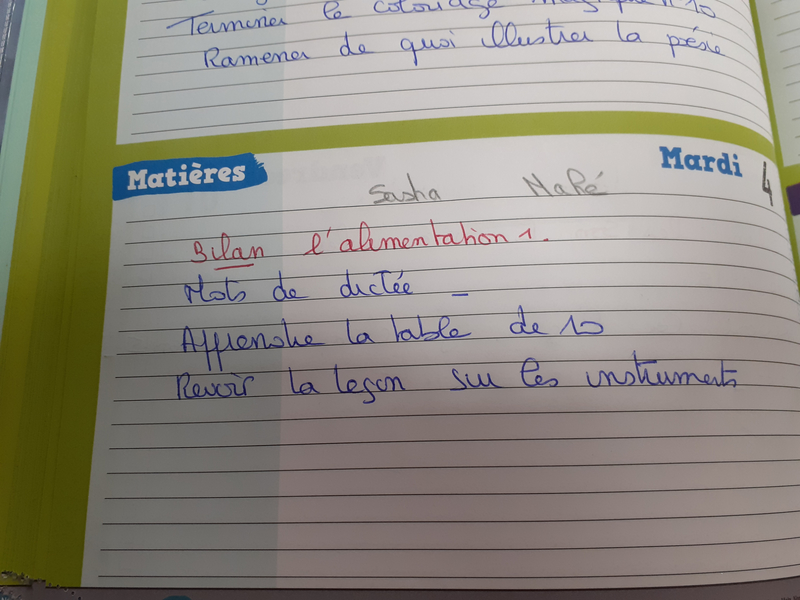 Terminer le coloriage magique n°10
Ramener de quoi illustrer la pésie
Matières
Mardi 4
Sasha Mahé
Bilan l'alimentation 1.
Mots de dictée -
Apprendre la table de 10
Revoir la leçon sur les instruments